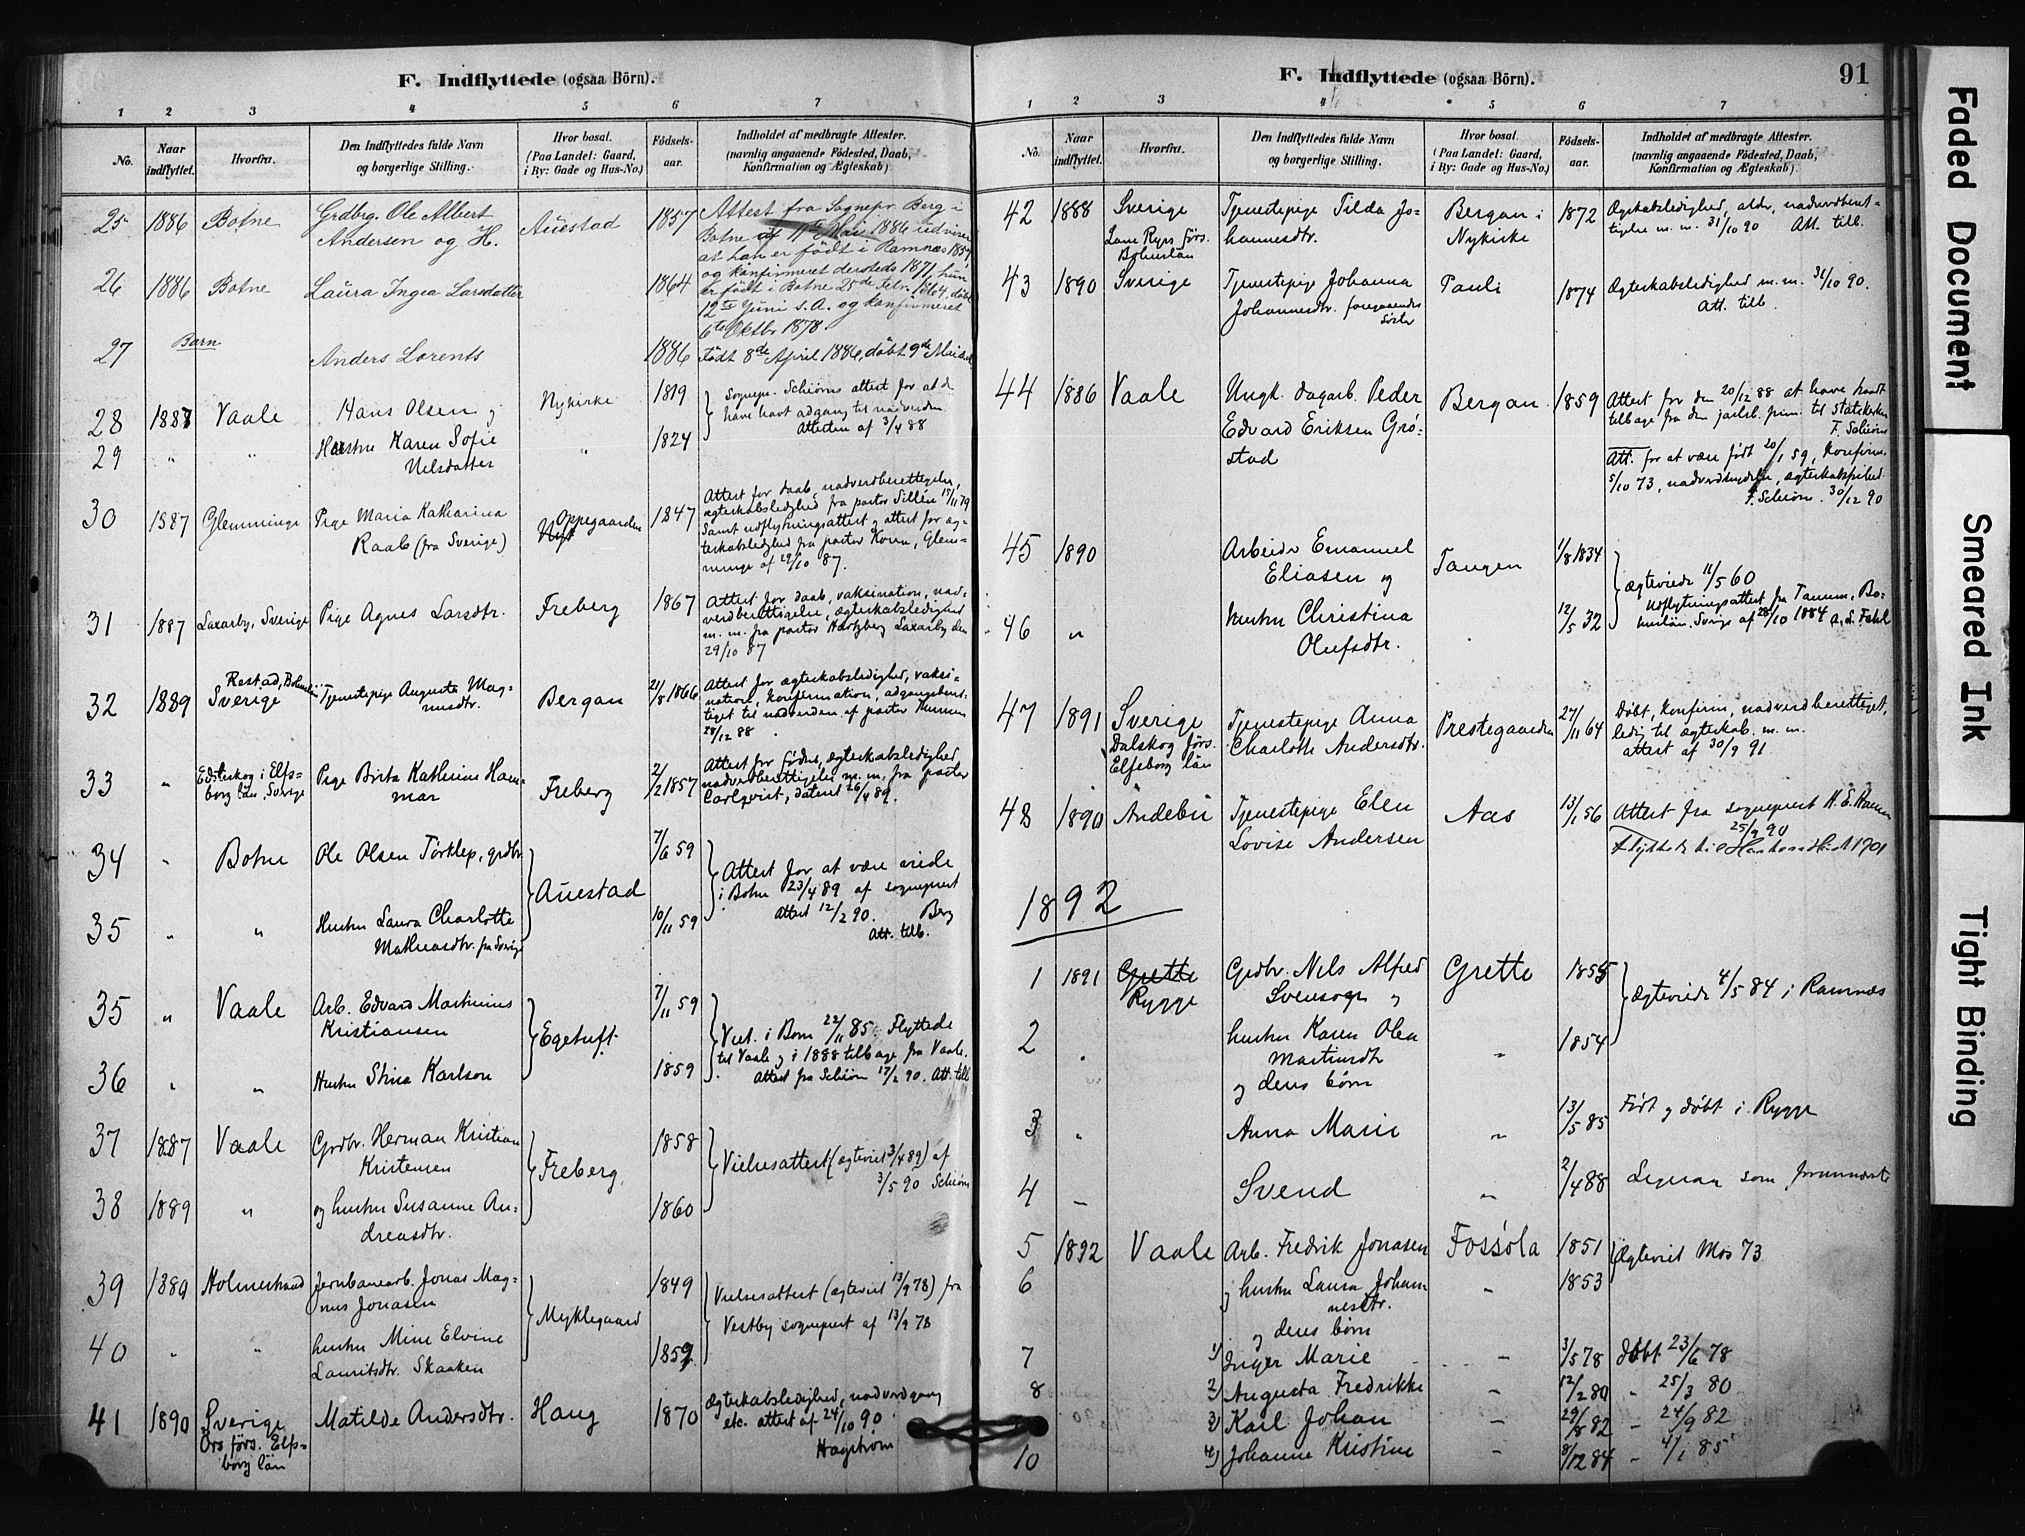 F. Indflyttede (ogsaa Börn).
1 2 3 4 5 6 7
No. Naar indflyttet. Hvorfra. Den Indflyttedes fulde Navn og borgerlige Stilling. Hvor bosat. (Paa Landet: Gaard, i By: Gade og Hus-No.) Födsels-aar. Indholdet af medbragte Attester. (navnlig angaaende Födested, Daab, Konfirmation og Ægteskab).
25 1886 Botne Grdbrg. Ole Albert Auestad 1857 Attest fra Sognepr. Berg i
Andersen og H. Botne af 11te Mai 1886 udviser
at han er født i Ramnæs 1857
og konfirmeret dersteds 1871, hun
26 1886 Botne Laura Ingea Larsdatter 1864 er født i Botne 25de Febr. 1864, døbt
12te Juni s.A. og konfirmeret
6te Oktbr 1878.
Barn
27 Anders Lorents 1886 Født 8de April 1886, døbt 9de Mai
28 1887 Vaale Hans Olsen og Nykirke 1819 Sognepr. Schiørns attest for at de
have havt adgang til nadverden
Attesten af 3/4 88
29 " " Hustru Karen Sofie " 1824
Nilsdatter
30 1887 Glemminge Pige Maria Katharina Oppegaarden 1847 Attest for daab, nadverdberettigelse,
Raab (fra Sverige) ægteskabsledighed fra pastor Sillén 17/11 79
Samt udflytningsattest og attest for æg-
teskabsledighed fra pastor Koren, Glem-
minge af 29/10 87.
31 1887 Laxarby, Sverige Pige Agnes Larsdtr. Freberg 1867 Attest for daab, vaksination, nad-
verdberettigelse, ægteskabsledighed
m. m. fra pastor Hertzberg Laxarby den
29/10 87
32 1889 Sverige Tjenestepige Augusta Mag- Bergan 21/8 1866 Attest for ægteskabsledighed, vaksi-
nusdtr. nation, konfirmation, adgangsberet-
tiget til nadverden af pastor
28/12 88.
33 " Edsleskog i Elfs- Pige Brita Kathrine Ham- Freberg 2/2 1857 Attest for fødsel, ægteskabsledighed
borg län, Sverige mar nadverdberettigelse m. m. fra pastor
Carlqvist, dateret 26/4 89.
34 " Botne Ole Olsen Tørklep, grdbr. Auestad 7/6 59 Attest for at være viede
i Botne 23/4 89 af sogneprest
35 " " Hustru Laura Charlotte 10/11 59 Attest 12/2 90. Berg
Mathiasdtr. fra Sverige Att. tilb.
35 " Vaale Arb. Edvard Martinius Egetuft 7/11 59 Viet i Borre 22/11 85. Flyttede
Kristiansen til Vaale og i 1888 tilbage fra Vaale.
36 " " Hustru Stina Karlson 1859 Attest fra Schiørn 17/2 90. Att. tilb
37 1887 Vaale Grdbr. Herman Kristian Freberg 1858 Vielsesattest (ægteviet 3/4 89) af
Kristensen 3/5 90 Schiørn
38 1889 " og hustru Susanne An- 1860
dreasdtr.
39 1880 Holmestrand Jernbanearb. Jonas Mag- Myklegaard 1849 Vielsesattest (ægteviet 13/9 78) fra
nus Jonasen Vestby sogneprest af 13/9 78
40 " " hustru Mine Elvine 1859
Lauritsdtr. Skaaken
41 1890 Sverige Matilde Andersdtr. Haug 1870 Ægteskabsledighed, nadverdgang
Örs förs. Elfs- etc. attest af 24/10 90.
borg län Hagstrøm
F. Indflyttede (ogsaa Börn). 91
1 2 3 4 5 6 7
No. Naar indflyttet. Hvorfra. Den Indflyttedes fulde Navn og borgerlige Stilling. Hvor bosat. (Paa Landet: Gaard, i By: Gade og Hus-No.) Födsels-aar. Indholdet af medbragte Attester. (navnlig angaaende Födested, Daab, Konfirmation og Ægteskab).
42 1888 Sverige Tjenestepige Tilda Jo- Bergan i 1872 Ægteskabsledighed, alder, nadverdberet-
hannesdtr. Nykirke tigelse m. m. 31/10 90 Att. tilb.
Bohuslän
43 1890 Sverige Tjenestepige Johanna Pauli 1874 Ægteskabsledighed m. m. 31/10 90.
Johannesdtr. foregaaendes Att. tilb.
Søster
44 1886 Vaale Ungk. dagarb. Peder Bergan 1859 Attest for den 20/12 88 at have traadt
Edvard Eriksen Grø- tilbage fra den jarlsb. frim. til statskirken
stad F. Schiørn
Att. for at være født 20/1 59, konfirm.
5/10 73, nadverdnydelse, ægteskabsfrihed
F. Schiørn. 30/12 90
45 1890 Arbeider Emanuel Tangen 1/8 1834 Ægteviede 11/5 60
Eliasen og Udflytningsattest fra Tanum, Bo-
46 " hustru Christina 12/5 32 huslän. Sverige af 28/10 1884
Olufsdtr.
47 1891 Sverige Tjenestepige Anna Prestegaarden 27/11 64 Døbt, konfirm., nadverdberettiget,
Dalskog förs. Charlotte Andersdtr. ledig til ægteskab m. m.
Elfsborg län attest af 30/9 91
48 1890 Andebu Tjenestepige Elen Aas 13/1 56 Attest fra sogneprest
Lovise Andersen 25/9 90
1892
1 1891 Grette Grdbr. Nels Alfred Grette 1855 Ægteviede 4/5 84 i Ramnæs
Rygge Svensogn og
2 " hustru Karen Olea " 1854
Martinsdtr
og deres børn
3 " Anna Marie " 13/5 85 Født og døbt i Rygge
4 — Svend " 2/4 88 Ligesaa som forannævnte
5 1892 Vaale Arb. Fredrik Jonasen Fossøla 1851 Ægteviet Mos 73
6 og hustru Laura Johan- " 1853
nesdtr.
og deres børn
7 1) Inger Marie " 3/5 78 døbt 23/6 78
8 2) Augusta Fredrikke " 12/2 80 " 25/3 80
3) Karl Johan " 29/8 82 " 24/9 82
10 4) Johanne Kristine " 8/12 84 " 4/1 85
Faded Document
Smeared Ink
Tight Binding